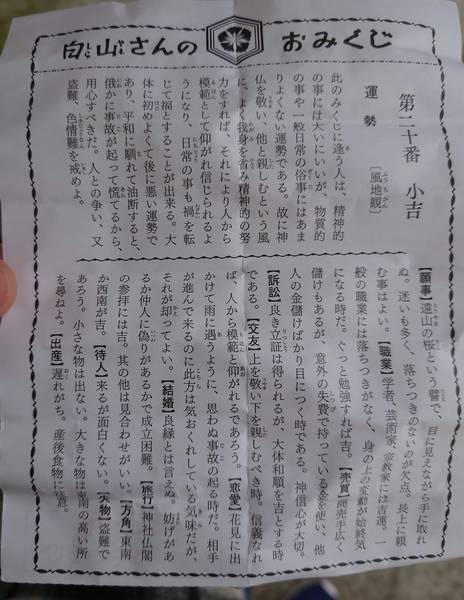 白山さんの おみくじ
第二十番 小吉
〔風地観〕
運勢
此のみくじに逢う人は、精神的
の事には大いにいいが、物質的
の事や一般日常の俗事にはあま
りよくない運勢である。故に神
仏を敬い、他と親しむという風
に、よく我身を省み精神的の努
力をすれば、それにより人から
模範として仰がれ信じられるよ
うになり、日常の事も禍を転
じて福とすることが出来る。大
体に初めよくて後に悪い運勢で
あり、平和に馴れて油断すると、
俄かに事故が起って慌てるから、
用心すべきだ。人との争い、又
盗難、色情難を戒めよ。
【願事】遠山の桜という譬で、目に見えながら手に取れ
ぬ。迷いも多く、落ちつきのないのが欠点。長上に頼
む事はよい。【職業】学者、芸術家、宗教家には吉運。一
般の職業には落ちつきがなく、身の上の変動が始終気
になる時だ。ぐっと勉強すれば吉。【売買】商売手広く
儲けもあるが、意外の失費で持っている金を使い、他
人の金儲けばかり目につく時である。神信心が大切。
【訴訟】良き立証は得られるが、大体和順を吉とする時
である。【交友】上を敬い下を親しむべき時。信義なれ
ば、人から模範と仰がれるであろう。【恋愛】花見に出
かけて雨に遇うように、思わぬ事故の起る時だ。相手
が進んで来るのに此方は気おくれしている気味だが、
それが却ってよい。【結婚】良縁とは言えぬ。妨げがあ
るか仲人に偽りがあるかで成立困難。【旅行】神社仏閣
の参拝には吉。其の他は見合わせがいい。【方角】東南
か西南が吉。【待人】来るが面白くない。【失物】盗難で
あろう。小さな物は出ない。大きな物は東南の高い所
を尋ねよ。【出産】遅れがち。産後食物に注意。